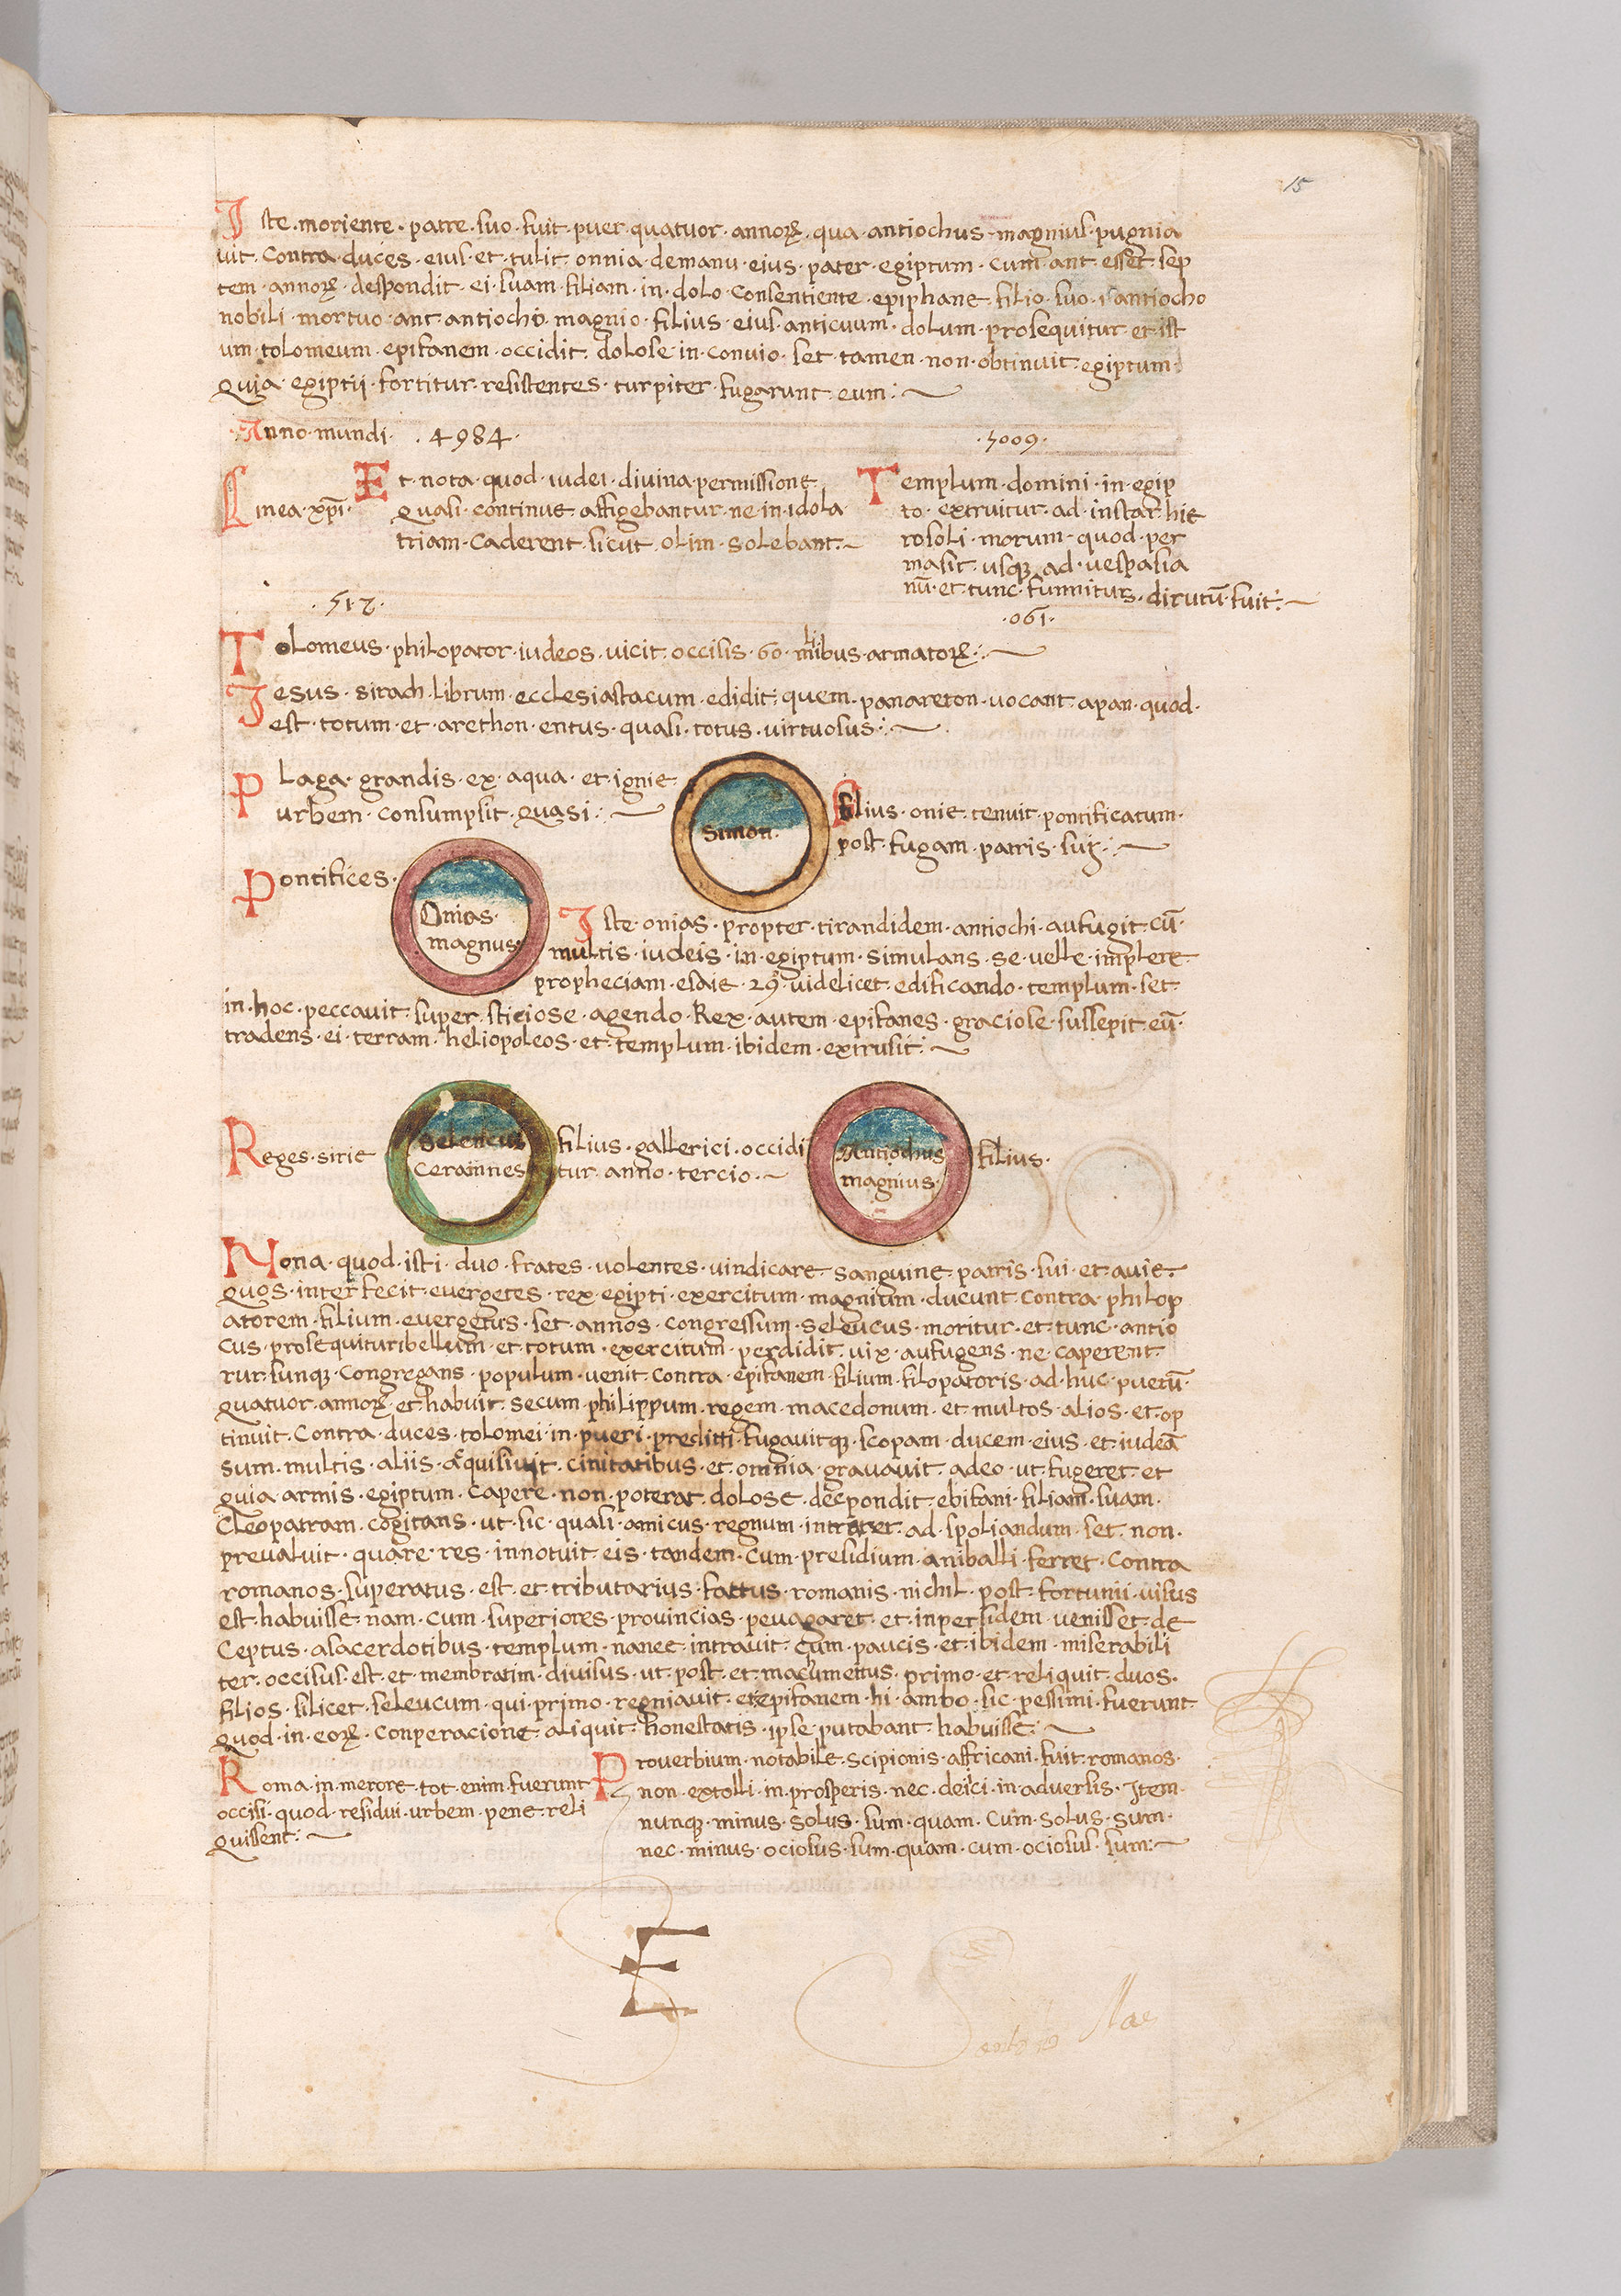 15
Iste · moriente · patre · suo · fuit · puer · quatuor · annoꝝ · qua · antiochus · magnius · pugnia
uit · contra · duces · eius · et · tulit · onnia · demanu · eius · pater · egiptum · cum · ant · esset · sep
tem · annoꝝ · despondit · ei · suam · filiam · in · dolo · consentiente · epiphane · filio · suo · antiocho
nobili · mortuo · ant · antiochi · magnio · filius · eius · anticuum · dolum · prosequitur · et · ist
um · tolomeum · epifanem · occidit · dolose · in · conuio · set · tamen · non · obtinuit · egiptum
quia · egiptii · fortitur · resistentes · turpiter · fugarunt · eum :~
Anno · mundi · 4984 ·
· 5009 ·
Linea · xp̄i ·
Et · nota · quod · iudei · diuina · permissione
quasi · continue · affigebantur · ne · in · idola
triam · caderent · sicut · olim · solebant :~
Templum · domini · in · egip
to · extruitur · ad · instar · hie
rosoli · morum · quod · per
masit · usqꝫ · ad · uespasia
nū · et · tunc · funnitus · dirutū · fuit :~
· 517 ·
· 061 ·
Tolomeus · philopator · iudeos · uicit · occisis · 60 · milibus · armatoꝝ :~
Iesus · sirach · librum · ecclesiastacum · edidit · quem · panareton · uocant · apan · quod ·
est · totum · et · arethon · entus · quasi · totus · uirtuosus :~
Plaga · grandis · ex · aqua · et · ignie
urbem · consumpsit · quasi :~
Simon ·
filius · onie · tenuit · pontificatum ·
post · fugam · patris · sui :~
Pontifices ·
Onias ·
magnus ·
Iste · onias · propter · tirandidem · antiochi · aufugit · cū ·
multis · iudeis · in · egiptum · simulans · se · uelle · implere
propheciam · esaie · 29 · uidelicet · edificando · templum · set
in · hoc · peccauit · super · sticiose · agendo · Rex · autem · epifanes · graciose · sussepit · eū ·
tradens · ei · terram · heliopoleos · et · templum · ibidem · extrusit :~
Reges · sirie
Seleucus
Ceramnes
filius · gallerici · occidi
tur · anno · tercio ·~
Antiochus
magnius ·
filius ·
Nona · quod · isti · duo · frates · uolentes · uindicare · sanguine · patris · sui · et · auie ·
quos · interfecit · euergetes · rex · egipti · exercitum · magnium · ducunt · contra · philop
atorem · filium · euergetus · set · annos · congressum · seleucus · moritur · et · tunc · antio
cus · prosequitur · bellum · et · totum · exercitum · perdidit · uix · aufugens · ne · caperent
rur · sunqꝫ · congregans · populum · uenit · contra · epifanem · filium · filopatoris · ad · huc · puerū ·
quatuor · annoꝝ · et · habuit · secum · philippum · regem · macedonum · et · multos · alios · et · op
tinuit · contra · duces · tolomei · in · pueri · preditti · fugauitqꝫ · scopam · ducem · eius · et · iudeā
sum · multis · aliis · acquisiuit · ciuitatibus · et · omnia · grauauit · adeo · ut · fugeret · et
quia · armis · egiptum · capere · non · poterat · dolose · despondit · ebifani · filiam · suam ·
Cleopatram · cogitans · ut · sic · quasi · amicus · regnum · intraret · ad · spoliandum · set · non ·
preualuit · quare · res · innotuit · eis · tandem · cum · presidium · aniballi · ferret · contra
romanos · superatus · est · et · tributarius · fattus · romanis · nichil · post · fortunii · uisus
est · habuisse · nam · cum · superiores · prouincias · peuagaret · et · inpersidem · uenisset · de
ceptus · asacerdotibus · templum · nanee · intrauit · cum · paucis · et · ibidem · miserabili
ter · occisus · est · et · membratim · diuisus · ut · post · et · macumettus · primo · et · reliquit · duos ·
filios · silicet · seleucum · qui · primo · regniauit · et · epifanem · hi · ambo · sic · pessimi · fuerunt ·
quod · in · eoꝝ · conperacione · aliquit · honestatis · ipse · putabant · habuisse :~
Roma · in · merore · tot · enim · fuerunt
occisi · quod · residui · urbem · pene · reli
quissent :~
Prouerbium · notabile · scipionis · affricani · fuit · romanos ·
non · extolli · in · prosperis · nec · deiici · in · aduersis · Item ·
nunqꝫ · minus · solus · sum · quam · cum · solus · sum ·
nec · minus · ociosus · sum · quam · cum · ociosus · sum :~